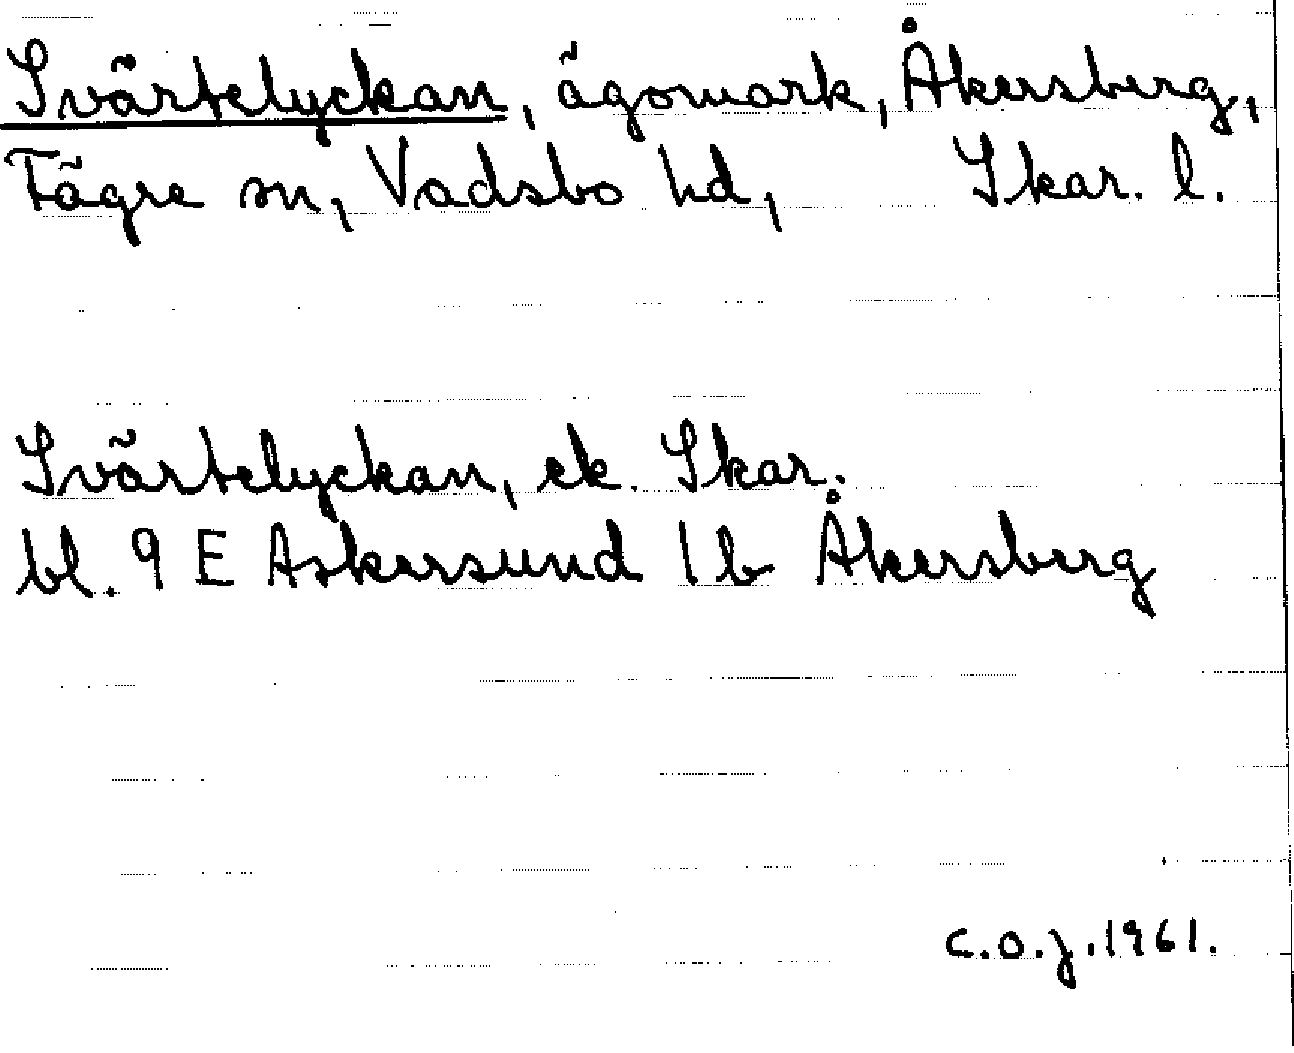 Svärtelyckan, ägomark, Åkersberg,
Fägre sn, Vadsbo hd, Skar. l.
Svärtelyckan, ek. Skar.
bl. 9 E Askersund 1 b Åkersberg
C.O.J. 1961.